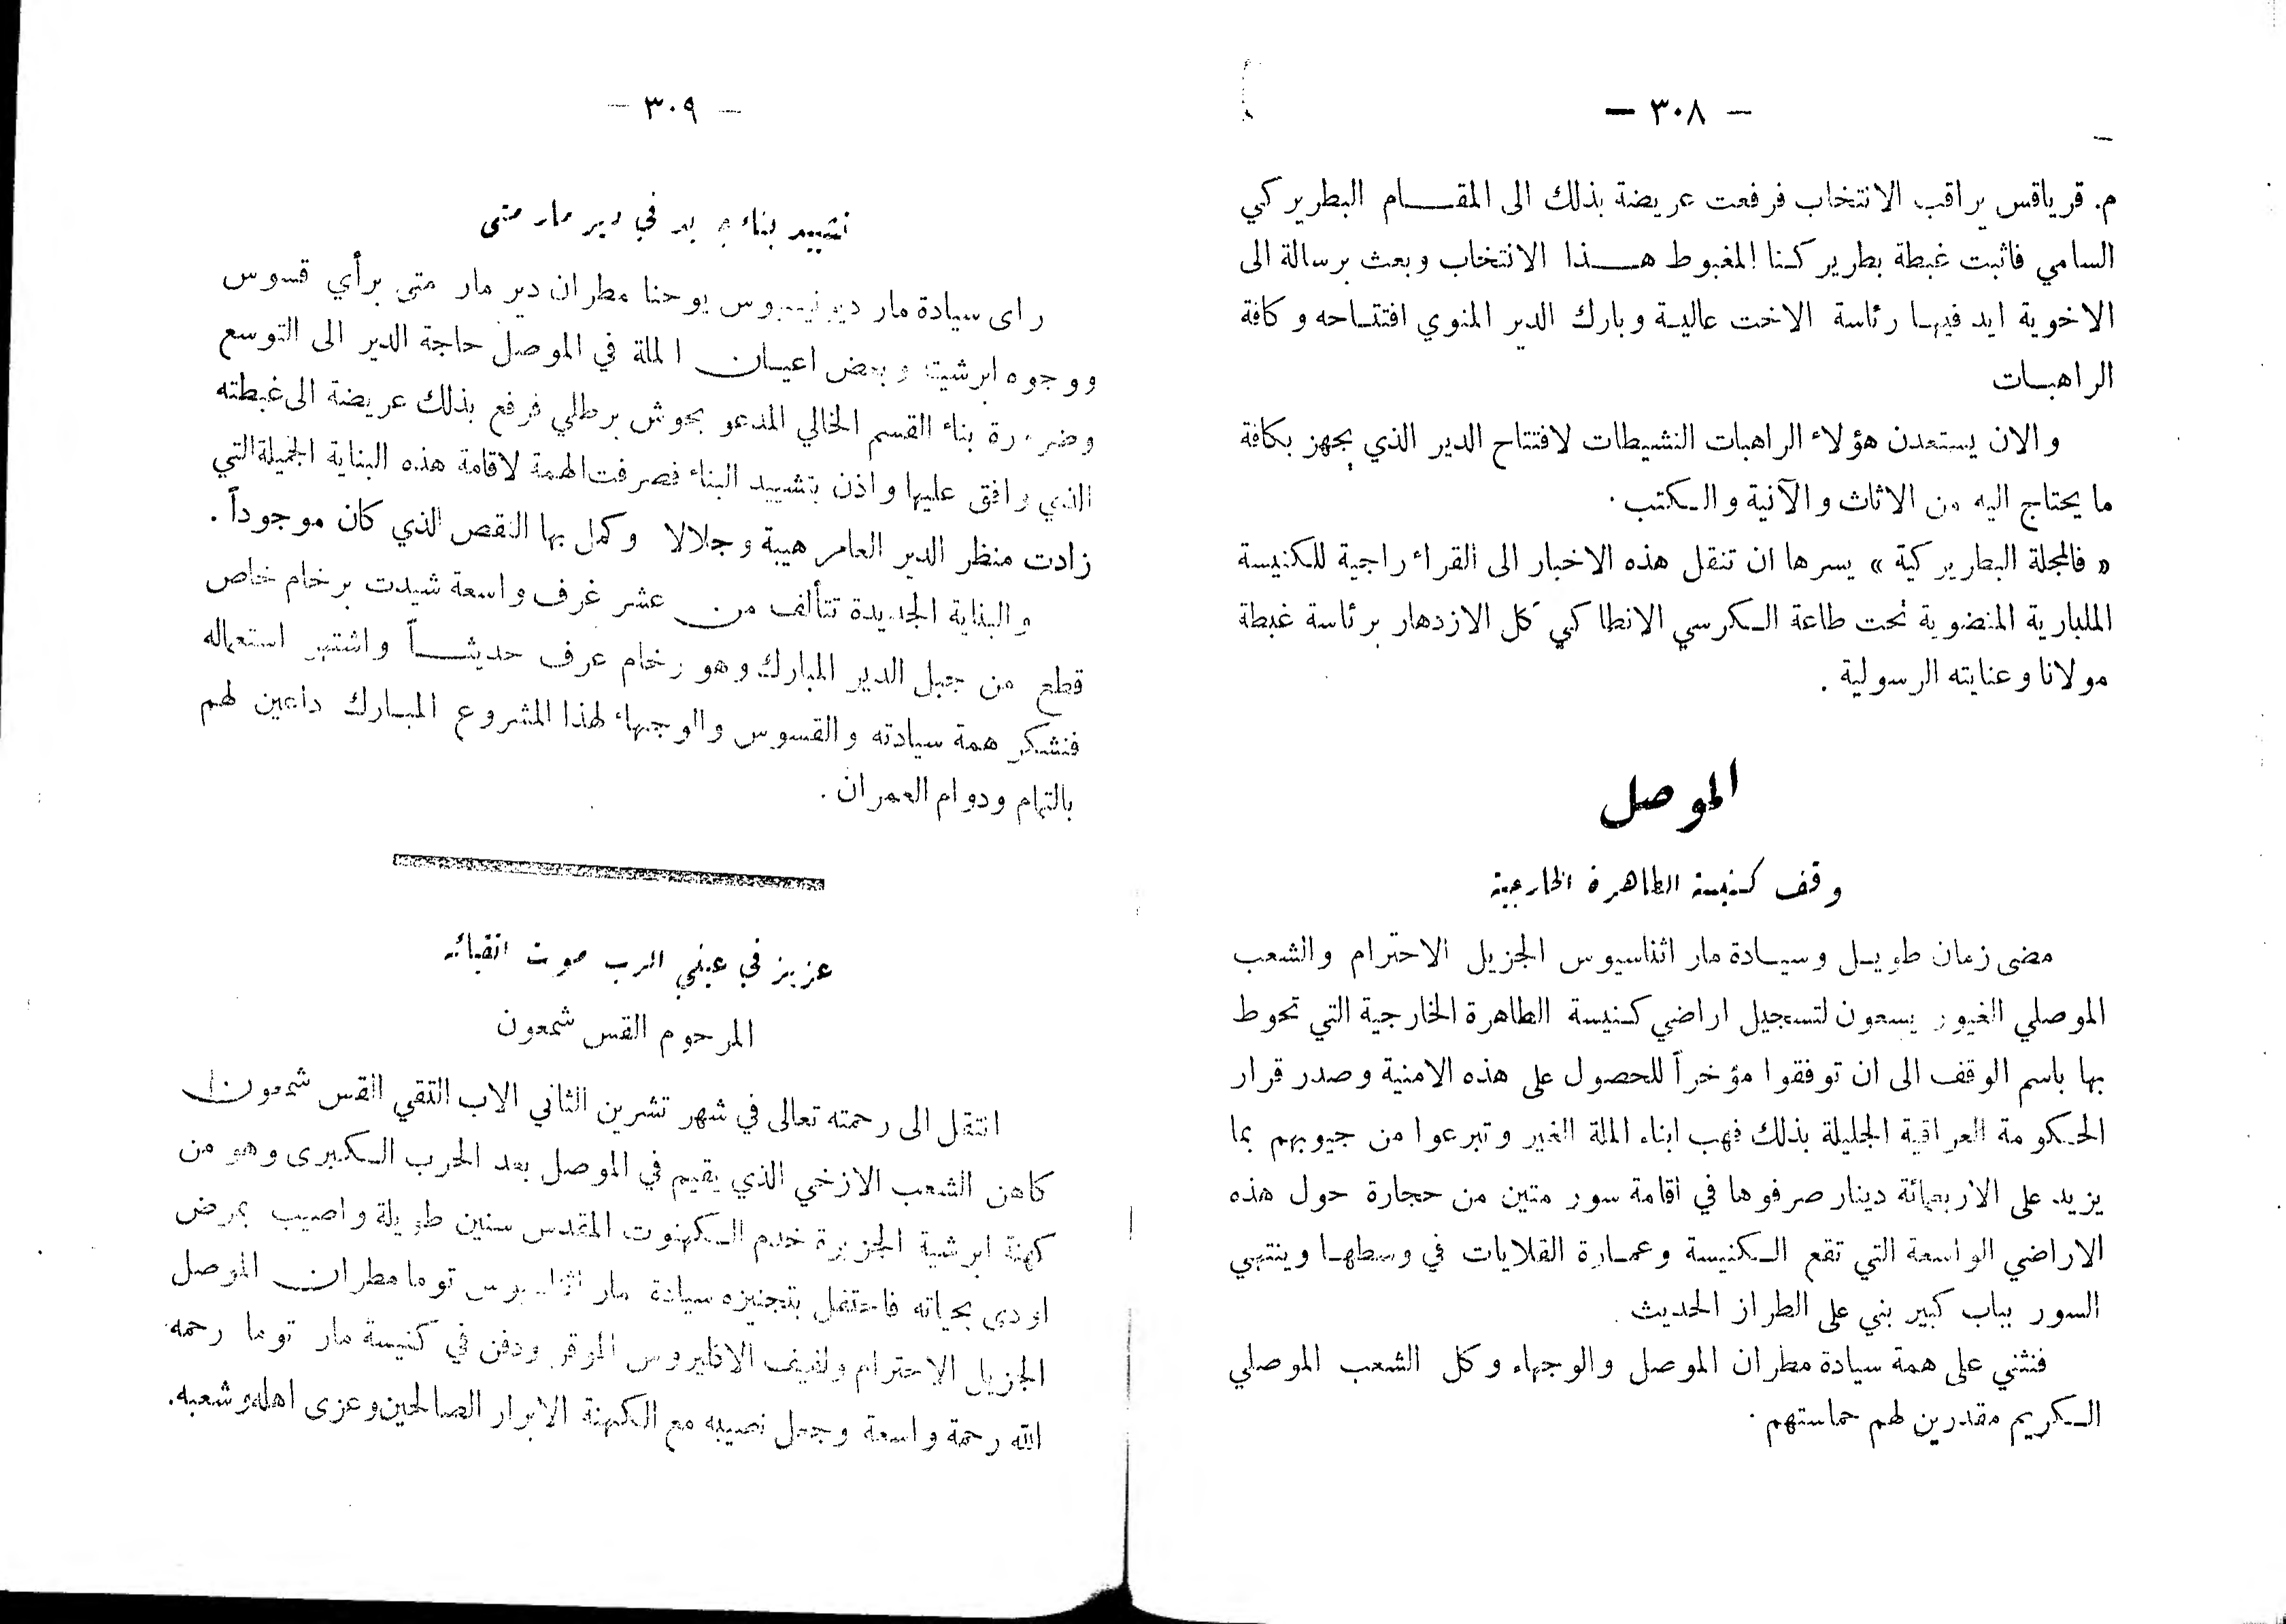 — ٣٠٨ —
م. قرياقس يراقب الانتخاب فرفعت عريضة بذلك الى المقـــام البطريركي
السامي فاثبت غبطة بطريركنا المغبوط هـــذا الانتخاب وبعث برسالة الى
الاخوية ايد فيهـا رئاسة الاخت عاليـة وبارك الدير المنوي افتتـاحه وكافة
الراهبـات
والان يستعدن هؤلاء الراهبات النشيطات لافتتاح الدير الذي يجهز بكافة
ما يحتاج اليه من الاثاث والآنية والـكتب .
« فالمجلة البطريركية » يسرها ان تنقل هذه الاخبار الى القراء راجية للكنيسة
الملبارية المنضوية تحت طاعة الـكرسي الانطاكي كل الازدهار برئاسة غبطة
مولانا وعنايته الرسولية .
الموصل
وقف كنيسة الطاهرة الخارجية
مضى زمان طويـل وسيـادة مار اثناسيوس الجزيل الاحترام والشعب
الموصلي الغيور يسعون لتسجيل اراضي كـنيسة الطاهرة الخارجية التي تحوط
بها باسم الوقف الى ان توفقوا مؤخراً للحصول على هذه الامنية وصدر قرار
الحـكومة العراقية الجليلة بذلك فهب ابناء الملة الغير وتبرعوا من جيوبهم بما
يزيد على الاربعمائة دينار صرفوها في اقامة سور متين من حجارة حول هذه
الاراضي الواسعة التي تقع الـكنيسة وعمـارة القلايات في وسطهـا وينتهي
السور بباب كبير بني على الطراز الحديث .
فنثني على همة سيادة مطران الموصل والوجهاء وكل الشعب الموصلي
الـكريم مقدرين لهم حماستهم .
— ٣٠٩ —
تشييد بناء جديد في دير مار متى
راى سيادة مار ديونيسيوس يوحنا مطران دير مار متى برأي قسوس
ووجوه ابرشيته وبعض اعيـان الملة في الموصل حاجة الدير الى التوسع
وضرورة بناء القسم الخالي المدعو بحوش برطلي فرفع بذلك عريضة الى غبطته
الذي وافق عليها واذن بتشييد البناء فصرفت الهمة لاقامة هذه البناية الجميلة التي
زادت منظر الدير العامر هيبة وجلالا وكمل بها النقص الذي كان موجوداً .
والبناية الجديدة تتألف من عشر غرف واسعة شيدت برخام خاص
قطع من جبل الدير المبارك وهو رخام عرف حديثــاً واشتهر استعماله
فنشكر همة سيادته والقسوس والوجهاء لهذا المشروع المبـارك داعين لهم
بالتمام ودوام العمران .
عزيز في عيني الرب موت اتقيائه
المرحوم القس شمعون
انتقل الى رحمته تعالى في شهر تشرين الثاني الاب التقي القس شمعون
كاهن الشعب الازخي الذي يقيم في الموصل بعد الحرب الـكبرى وهو من
كهنة ابرشية الجزيرة خدم الـكهنوت المقدس سنين طويلة واصيب بمرض
اودى بحياته فاحتفل بتجنيزه سيادة مار اثناسيوس توما مطران الموصل
الجزيل الاحترام ولفيف الاكليروس الموقر ودفن في كنيسة مار توما رحمه
الله رحمة واسعة وجعل نصيبه مع الكهنة الابرار الصالحين وعزى اهله وشعبه.